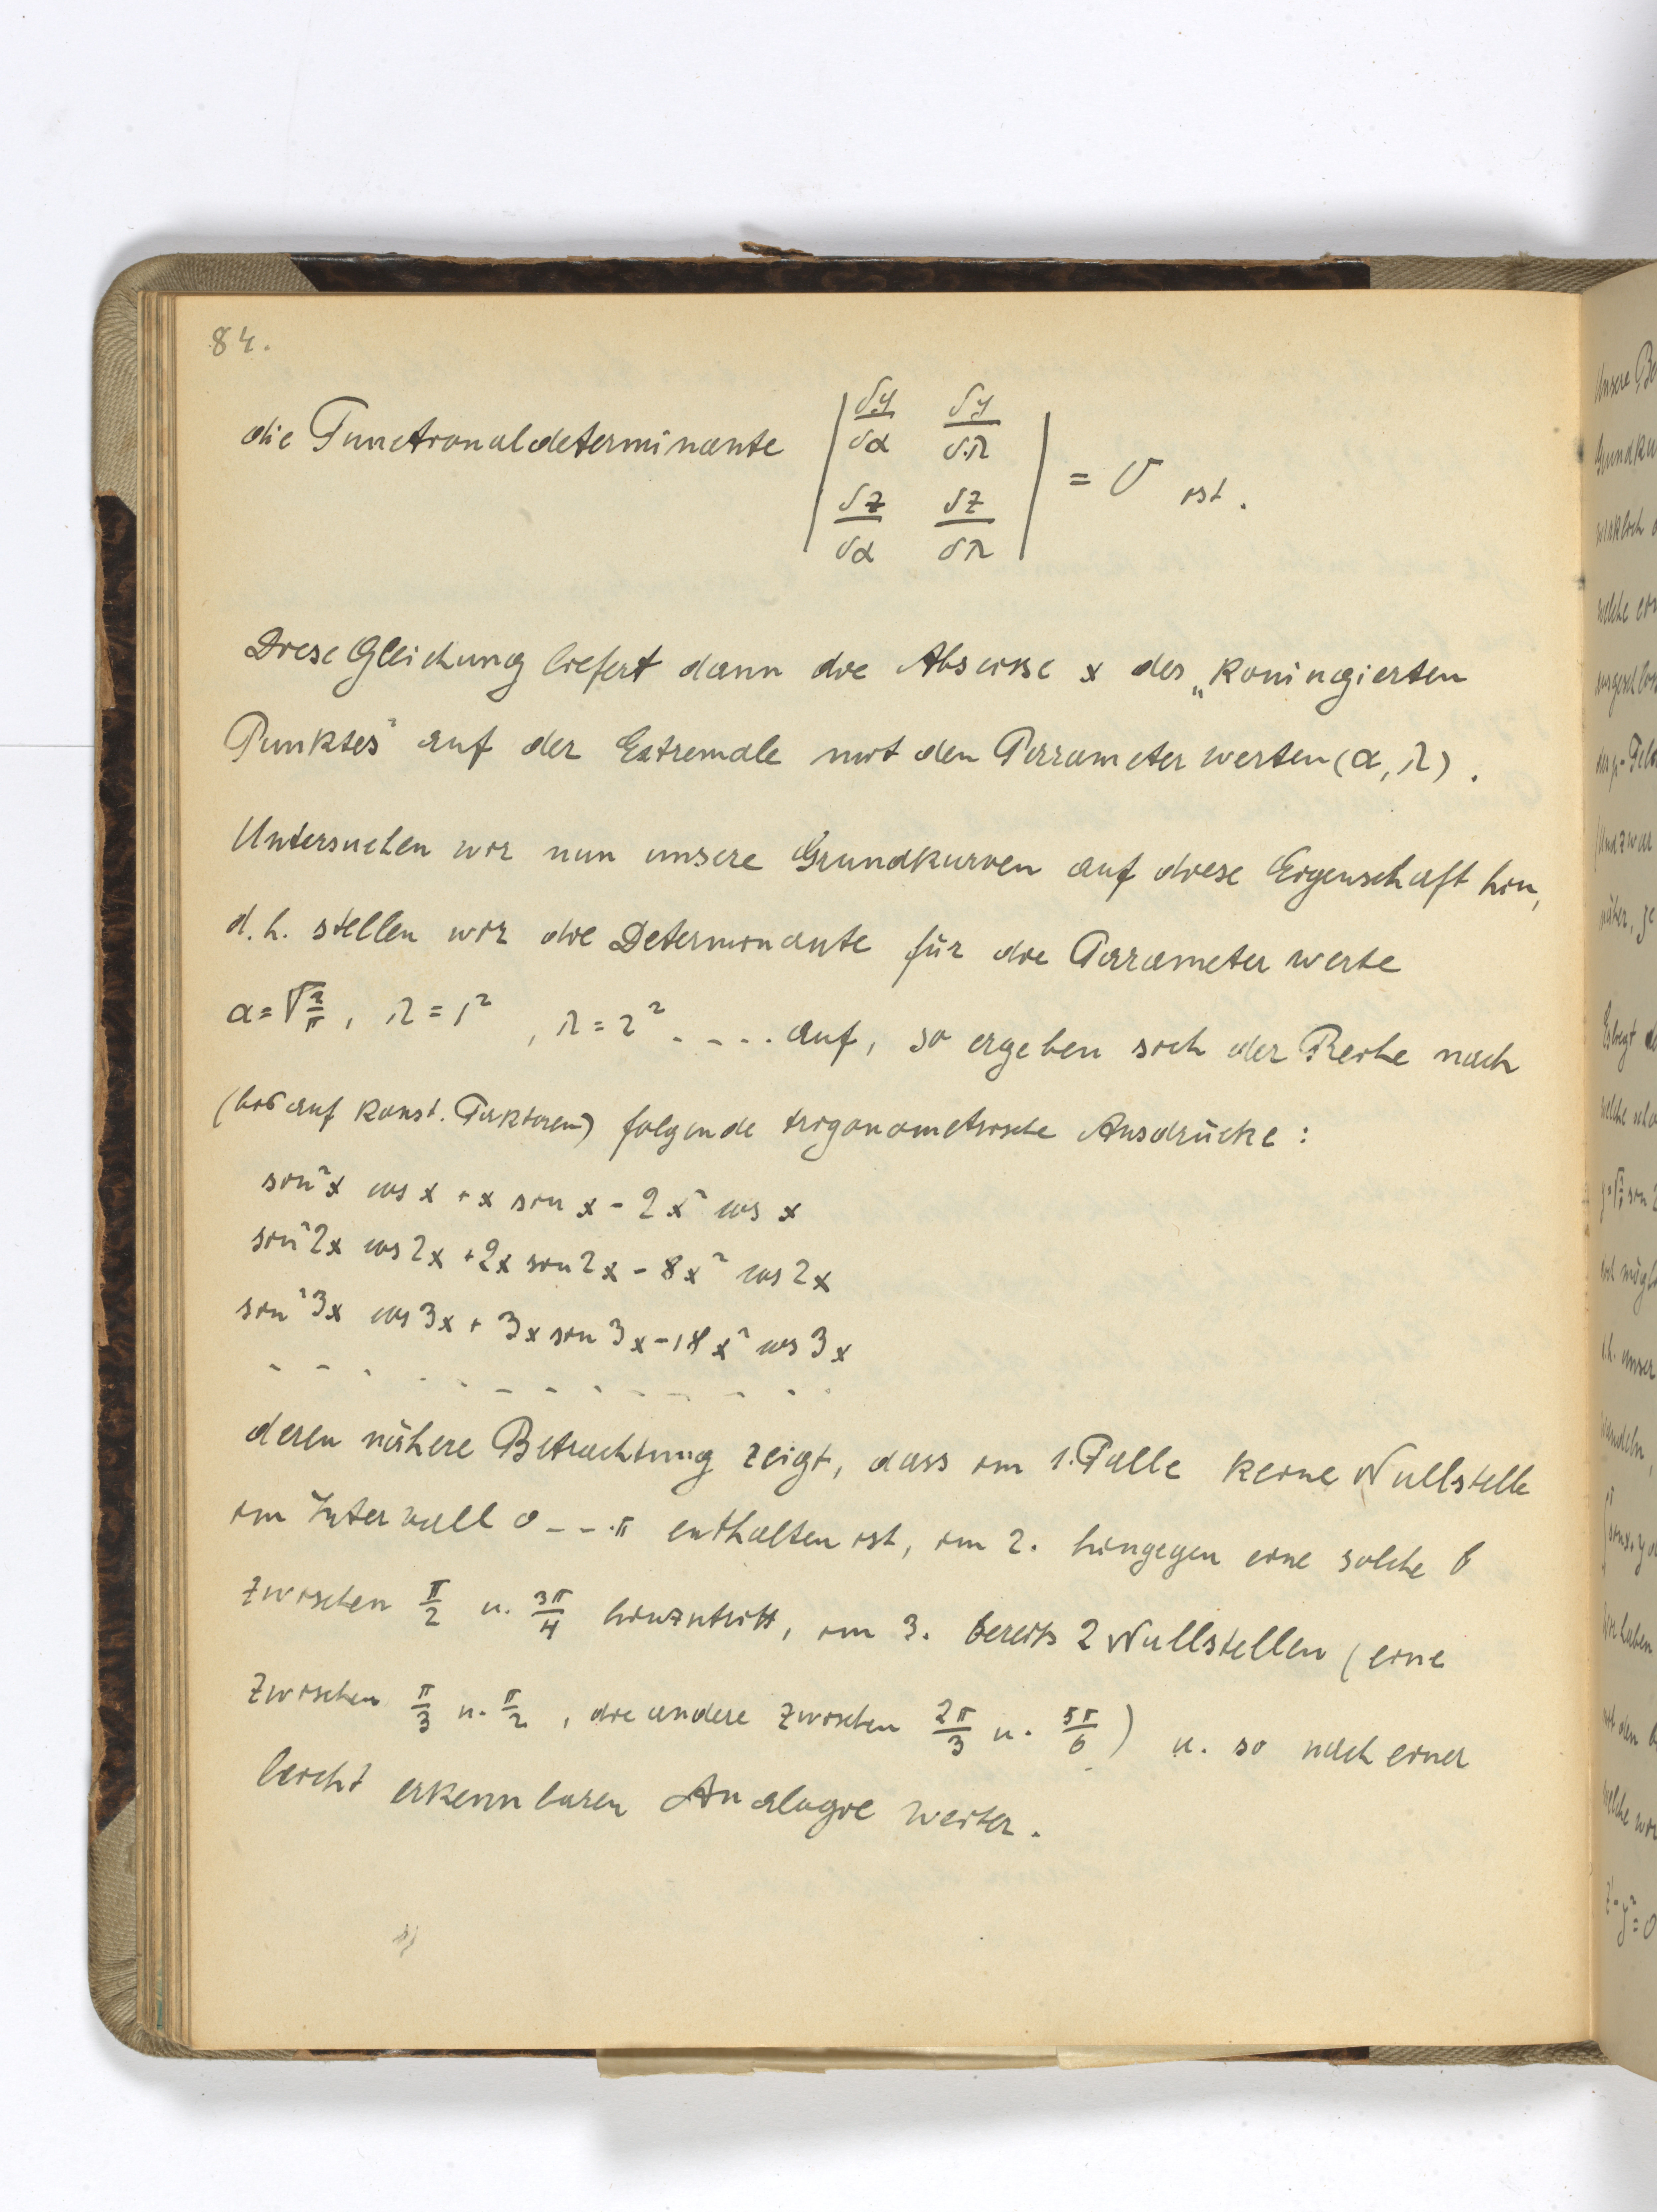 84.
die Functionaldeterminante | δy/δα δy/δλ |
| δz/δα δz/δλ | = 0 ist.
Diese Gleichung liefert dann die Abscisse x des „konjugierten
Punktes" auf der Extremale mit den Parameterwerten (α, λ).
Untersuchen wir nun unsere Grundkurven auf diese Eigenschaft hin,
d.h. stellen wir die Determinante für die Parameterwerte
α = √2/π, λ = 1², λ = 2² ---. auf, so ergeben sich der Reihe nach
(bis auf konst. Faktoren) folgende trigonometrische Ausdrücke:
sin²x cos x + x sin x - 2x² cos x
sin²2x cos 2x + 2x sin 2x - 8x² cos 2x
sin²3x cos 3x + 3x sin 3x - 18x² cos 3x
- - - - - - - - - - - - -
deren nähere Betrachtung zeigt, dass im 1. Falle keine Nullstelle
im Intervall 0---π enthalten ist, im 2. hingegen eine solche
zwischen π/2 u. 3π/4 hinzutritt, im 3. bereits 2 Nullstellen (eine
zwischen π/3 u. π/2, die andere zwischen 2π/3 u. 5π/6) u. so nach einer
leicht erkennbaren Analogie weiter.
Unsere
Grundku
wirklich
welche